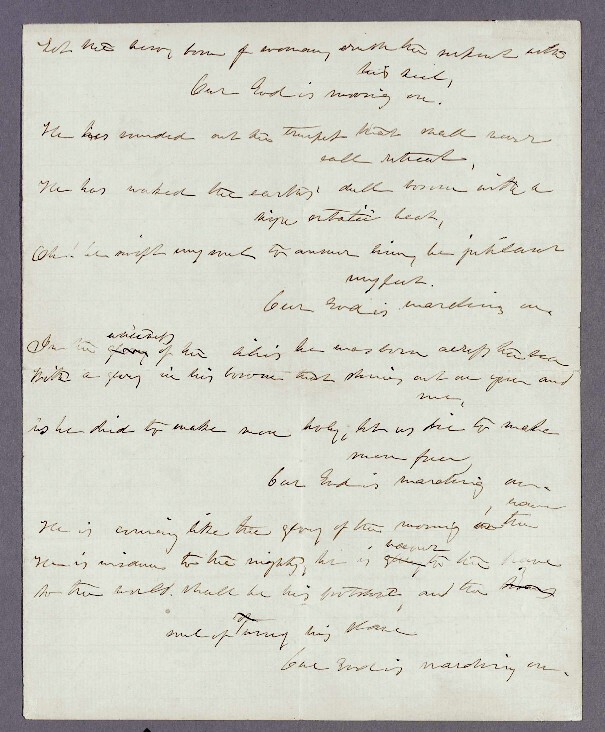 Let the hero, born of woman, crush the serpent with
his heel,
Our God is marching on.
He has sounded out the trumpet that shall never
call retreat,
He has waked the earth's dull bosom with a
high ecstatic beat,
Oh! be swift my soul to answer him, be jubilant
my feet.
Our God is marching on.
whiteness
In the glory of the lilies he was born across the sea
With a glory in his bosom that shines out on you and
me,
As he died to make men holy, let us die to make
men free
Our God is marching on.
He is coming like the glory of the morning on the wave
honour
He is wisdom to the mighty, he is to the brave
So the world shall be his footstool, and the
soul of Time his slave
Our God is marching on.